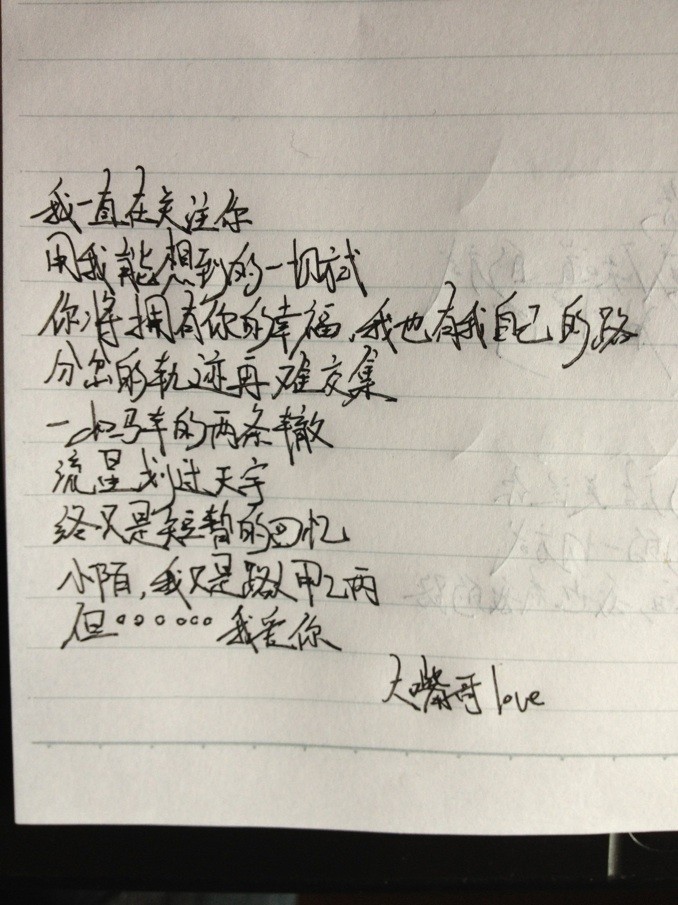 我一直在关注你
用我能想到的一切式
你将拥有你的幸福,我也有我自己的路
分岔的轨迹再难交集
一如马车的两条辙
流星划过天宇
终只是短暂的回忆
小陌,我只是路人甲乙丙
但。。。。。。我爱你
大嘴哥love